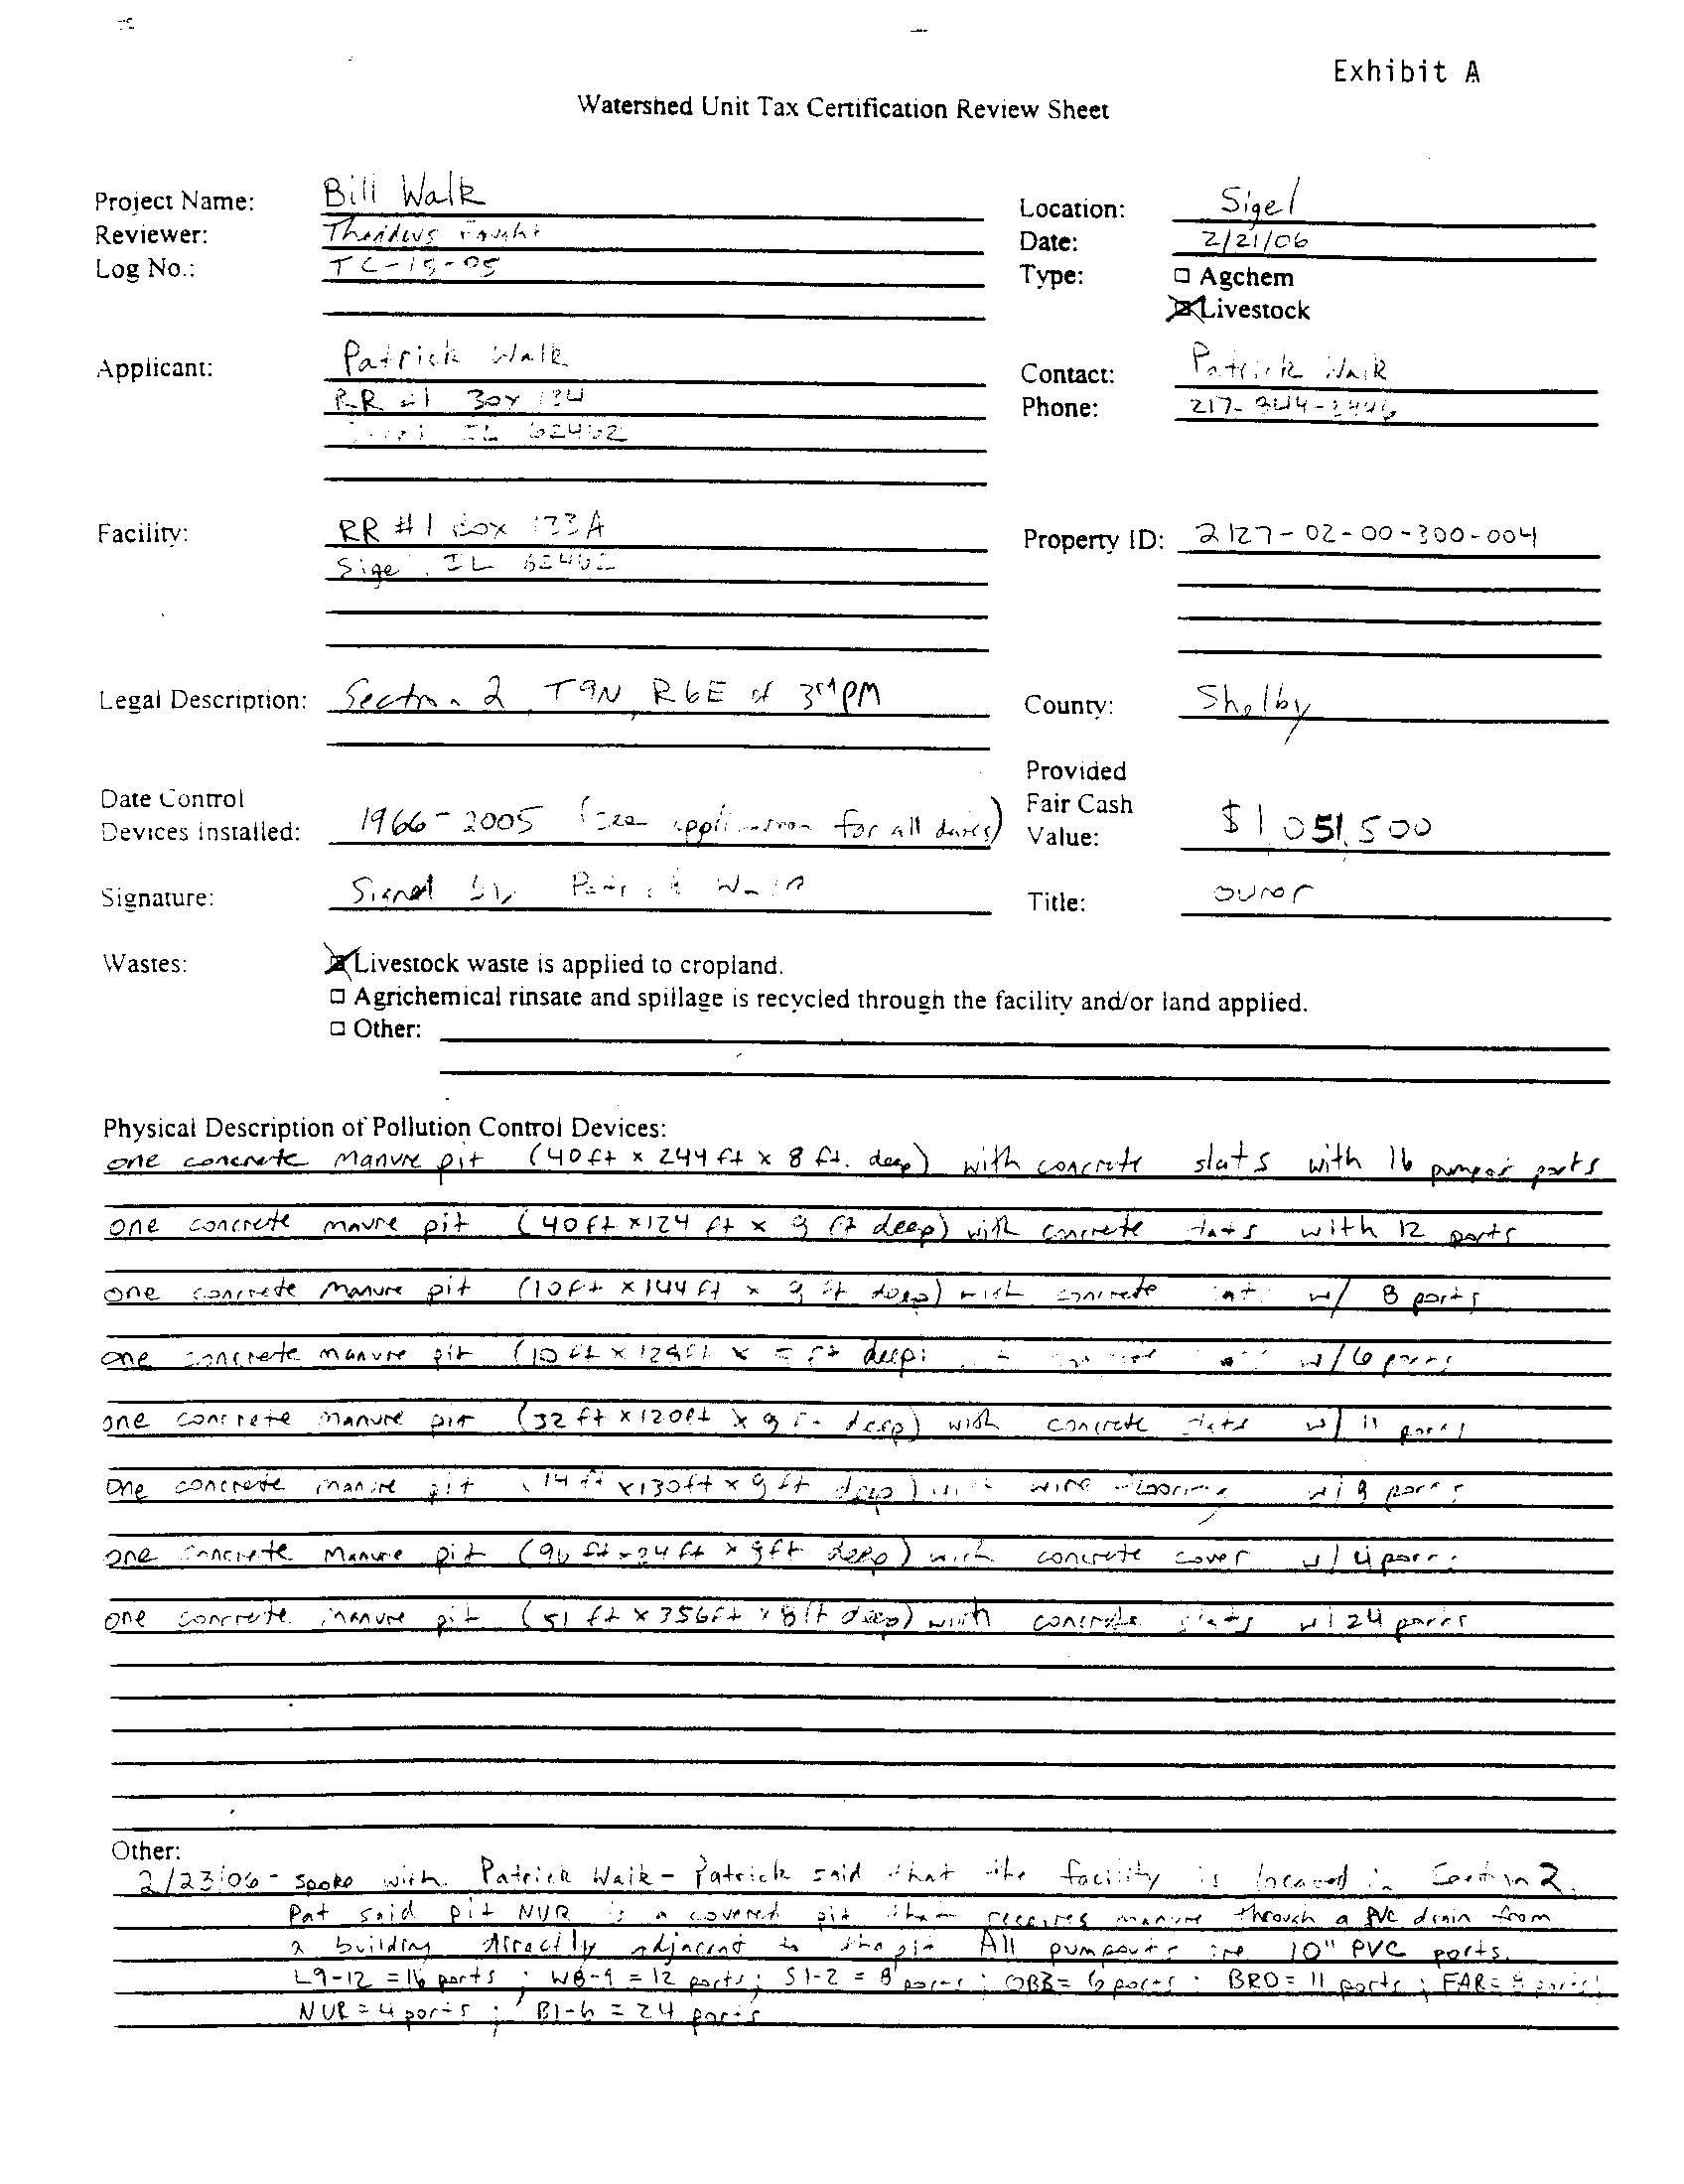 Exhibit A
Watershed Unit Tax Certification Review Sheet
Project Name: Bill Walk
Location: Sigel
Reviewer: Thaddeus
Date: 2/21/06
Log No.: TC-15-05
Type: Agchem
Livestock
Applicant: Patrick Walk
Contact: Patrick Walk
RR #1 Box 134
Phone: 217-844-
IL 62462
Facility: RR #1 Box 133A
Property ID: 2127-02-00-300-004
Sigel, IL 62462
Legal Description: Section 2, T9N, R6E of 3rd PM
County: Shelby
Provided
Date Control
Fair Cash
Devices installed: 1966-2005 (see application for all dates)
Value: $1,051,500
Signature: Signed by Patrick Walk
Title: owner
Wastes: Livestock waste is applied to cropland.
Agrichemical rinsate and spillage is recycled through the facility and/or land applied.
Other:
Physical Description of Pollution Control Devices:
one concrete manure pit (40ft x 244 ft x 8 ft. deep) with concrete slats with 16 pumpout ports
one concrete mavre pit (40ft x 124 ft x 9 ft deep) with concrete slats with 12 ports
one concrete manure pit (10ft x 144 ft x 9 ft deep) with concrete slats w/ 8 ports
one concrete manure pit (10 ft x ft deep) w/ 6 ports
one concrete manure pit (32 ft x 120ft x 9 ft deep) with concrete slats w/ 11 ports
one concrete manure pit (14 ft x 130ft x 9 ft deep) with wire flooring w/ ports
one concrete manure pit (96 ft x 24 ft x 9ft deep) with concrete cover w/ 4 ports
one concrete manure pit (51 ft x 356ft x 8ft deep) with concrete slats w/ 24 ports
Other:
2/23/06 - spoke with Patrick Walk - Patrick said that the facility is located in Section 2.
Pat said pit NUR is a covered pit that receives manure through a PVC drain from
a building directly adjacent to the pit. All pumpouts are 10" PVC ports.
L9-12 = 16 ports ; W8-9 = 12 ports ; S1-2 = 8 ports ; OBB = 6 ports ; BRO = 11 ports ; FAR = ports ;
NUR = 4 ports ; B1-6 = 24 ports